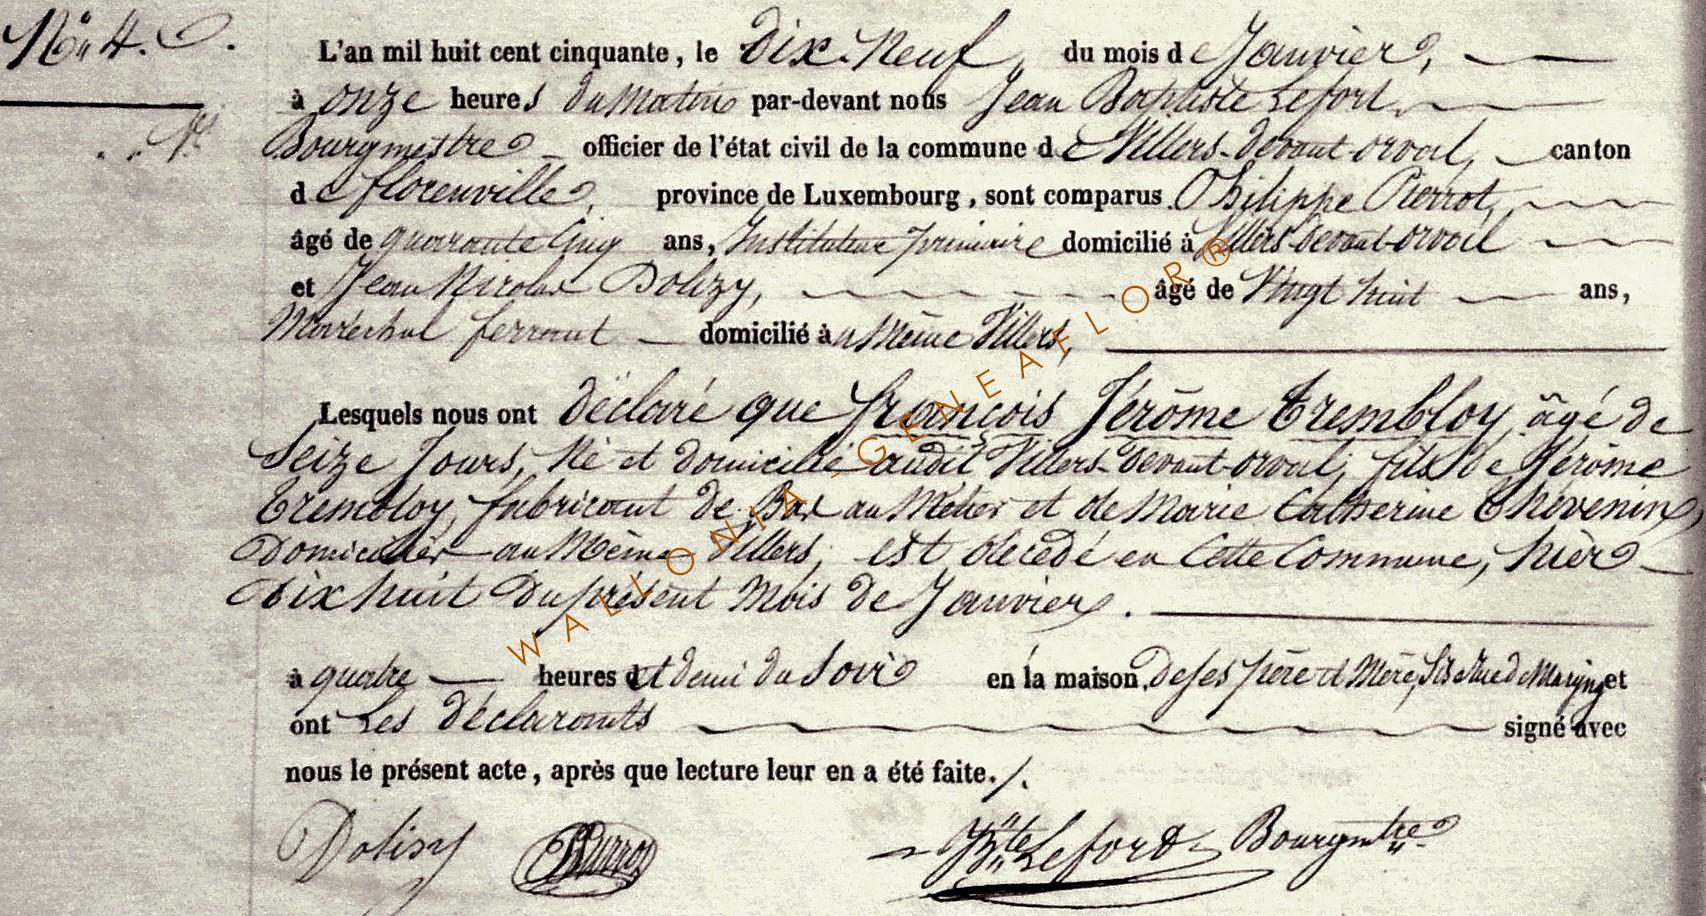 N° 4.
L'an mil huit cent cinquante, le Dix-Neuf, du mois de Janvier,
à onze heures du Matin par-devant nous Jean Baptiste Lefort,
Bourgmestre officier de l'état civil de la commune de Villers-devant-orval, canton
de florenville, province de Luxembourg, sont comparus Philippe Pierrot,
âgé de quarante Cinq ans, Instituteur primaire domicilié à Villers-devant-orval
et Jean Nicolas Dolizy, âgé de Vingt huit ans,
Maréchal ferrant domicilié au Même Villers,
Lesquels nous ont déclaré que françois Jérôme Trembloy, âgé de
Seize Jours, Né et domicilié audit Villers-devant-orval, fils de Jérôme
Trembloy, fabricant de Bas au Métier et de Marie Catherine Thévenin,
Domiciliés au Même Villers, est décédé en Cette Commune, hièr
dix huit du présent Mois de Janvier.
à quatre heures et demi du Soir en la maison, de ses père et Mère, Rue de et
ont Les déclarants signé avec
nous le présent acte, après que lecture leur en a été faite./.
Dolisy Pierrot JBte Lefort Bourgmtre
WALLONIA-GENEAFLOR®